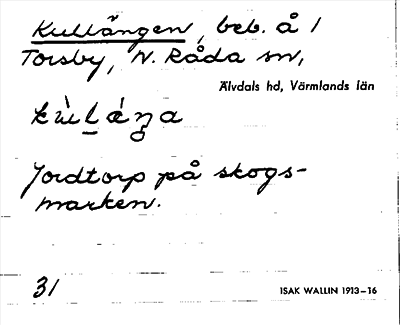 Kullängen, beb. å 1
Torsby, N. Råda sn,
Älvdals hd, Värmlands län
Jordtorp på skogs-
marken.
31
ISAK WALLIN 1913–16